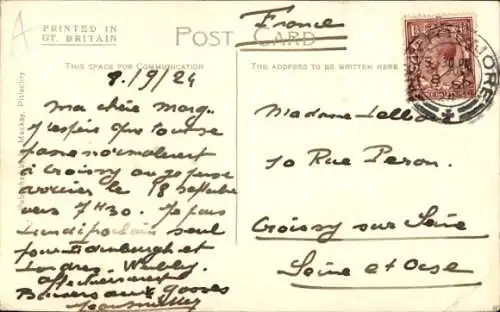 A
France
PRINTED IN
GT. BRITAIN
POST CARD
THIS SPACE FOR COMMUNICATION
THE ADDRESS TO BE WRITTEN HERE
Mackay, Pitlochry
9./9/24
Ma chère Marg.
J'espère que tout se
passe normalement
à Croissy où je pense
arriver le 18 septembre
vers 7H30. Je pars
lundi seul
pour Edinburgh et
Londres. Wembley.
Affectueusement
Baisers aux gosses
Madame
10 Rue Peron.
Croissy sur Seine
Seine et Oise